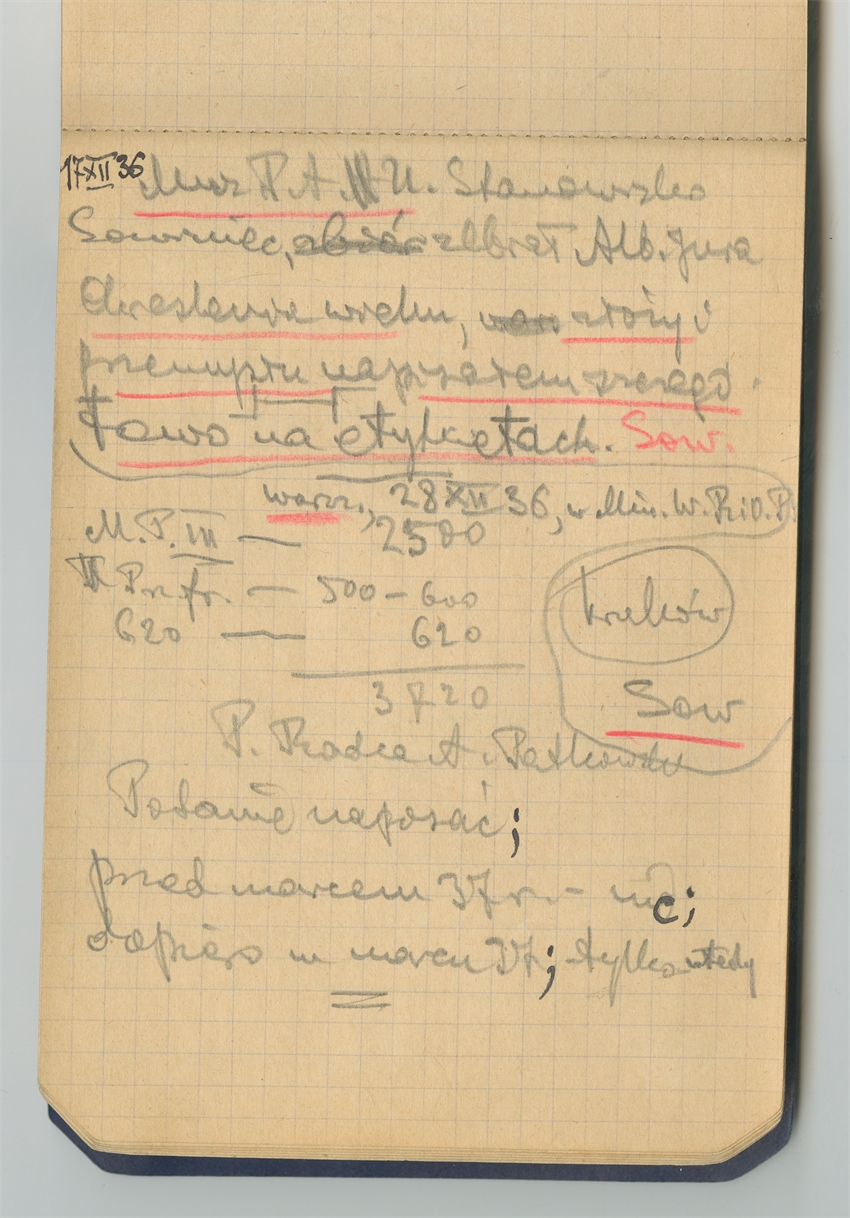 17XII36 Muz P. A. U. Stanowisko
Sowiniec, zbiór zebrał Alb. Jura
Określenie wieku, złoży i
przemysłu napisałem szczegó-
łowo na etykietach. Sow.
Warsz., 28XII36, w Min. W. R. i O. P.
M. P. III — 2500
III Pr. fr. — 500 – 600
620 — 620
3720
Kraków
Sow
P. Radca A. Patkowski
Podanie napisać;
przed marcem 37 r. – nic;
dopiero w marcu 37; tylko wtedy